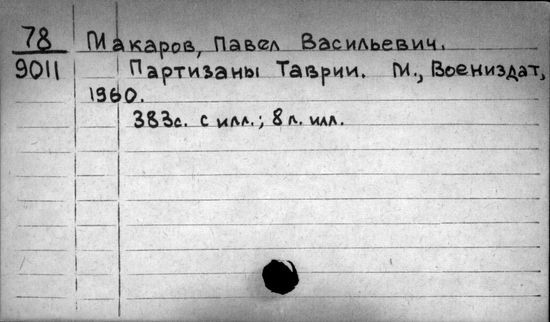 78 Макаров, Павел Васильевич.
9011 Партизаны Таврии. М., Воениздат,
1960.
383с. с илл.; 8 л. илл.